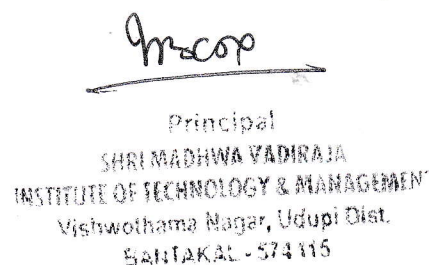 Principal
SHRI MADHWA VADIRAJA
INSTITUTE OF TECHNOLOGY & MANAGEMEN
Vishwothama Nagar, Udupi Dist.
BANTAKAL - 574 115